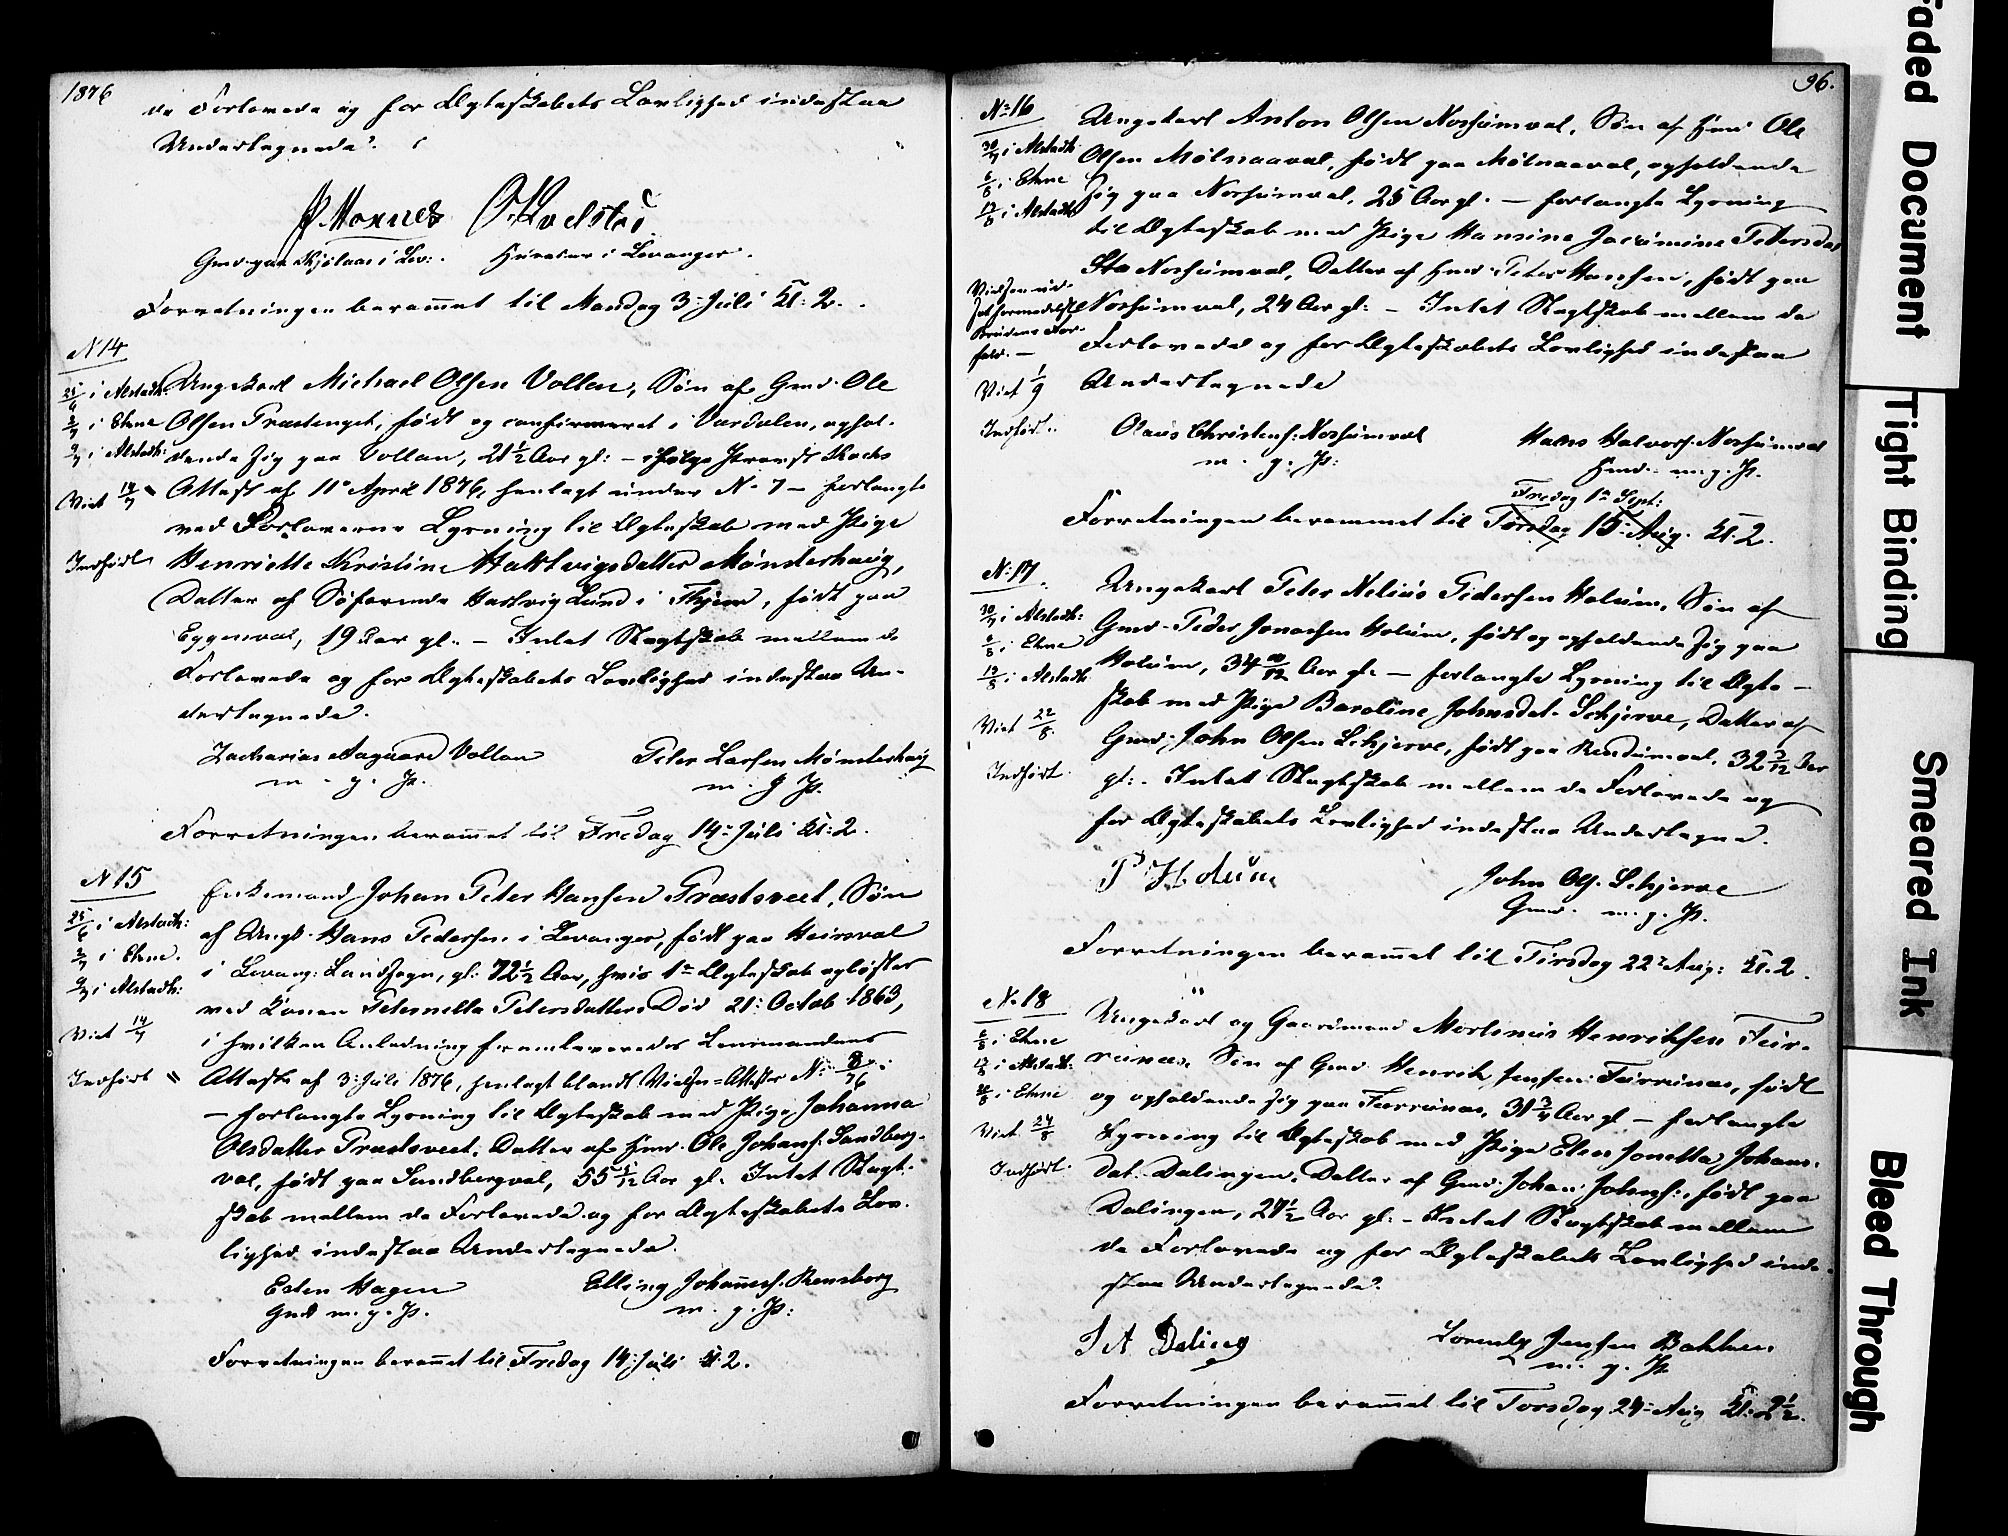 1876
de Forlovede og for Ægteskabets Lovlighed indestaa
Undertegnede.
Gmd. paa i Lev: i Levanger.
Forretningen beramet til Mandag 3. Juli Kl: 2.
N 14
25/6 i Alstadh:
2/7 i Ekne
9/7 i Alstadh:
Viet 14/7
Indført
Ungekarl Michael Olsen Vollan, Søn af Gmd. Ole
Olsen Præstenget, født og confirmeret i Værdalen, ophol-
dende sig paa Vollan, 21 1/2 Aar gl: – ifølge Provst
Attest af 11te April 1876, henlagt under N. 7 – forlangte
ved Forloverne Lysning til Ægteskab med Pige
Henriette Kristine Hartvigsdatter Mønsterhaug,
Datter af Søfarende Hartvig Lund i , født paa
Eggenval, 19 Aar gl. – Intet Slægtskab mellem de
Forlovede og for Ægteskabets Lovlighed indestaa Un-
dertegnede.
Zacharias Aagaard Vollan Peter Larsen Mønsterhaug
m. g. P. m. g P.
Forretningen beramet til Fredag 14. Juli Kl: 2.
N 15
25/6 i Alstadh:
2/7 i Ekne.
9/7 i Alstadh:
Viet 14/7
Indført
Enkemand Johan Peter Hansen Præstsveet, Søn
af Ungk. Hans Pedersen i Levanger, født paa Heirsval
i Levang: Landsogn, gl: 72 1/2 Aar, hvis 1te Ægteskab opløstes
ved Konen Peternella Petersdatters Død 21. Octob 1863,
i hvilken Anledning fremleveredes Lensmandens
Attest af 3. Juli 1876, henlagt blandt Vielses-Attester N: 8/76.
– forlangte Lysning til Ægteskab med Pige Johanna
Olsdatter Præstsveet, Datter af Hmd. Ole Johans: Sandberg-
val, født paa Sandbergval, 55 /12 Aar gl. Intet Slægt-
skab mellem de Forlovede og for Ægteskabets Lov-
lighed indestaa Undertegnede.
Esten Hagen Elling Johannes: Rensberg
Gmd m. g. P. m. g. P:
Forretningen beramet til Fredag 14. Juli Kl 2.
96.
No 16
30/7 i Alstadh:
6/8 i Ekne
13/8 i Alstadh
Vielsen ud-
sat formedelst
Brudens For-
fald. –
Viet 1/9
Indført.
Ungekarl Anton Olsen Norsumval, Søn af Hmd. Ole
Olsen Mølnaaval, født paa Mølnaaval, opholdende
sig paa Norsumval, 25 Aar gl. – forlangte Lysning
til Ægteskab med Pige Hansine Jacomine Petersdat
Sta Norsumval, Datter af Hmd. Peter Hansen, født paa
Norsumval, 24 Aar gl: – Intet Slægtskab mellem de
Forlovede og for Ægteskabets Lovlighed indestaa
Undertegnede
Olaus Christens: Norsumval Hans Halvors: Norsumval
m. g. P: Hmd. m. g. P.
Fredag 1te Sept:
Forretningen berammet til Tirsdag 15. Aug. Kl. 2.
N: 17
30/7 i Alstadh:
6/8 i Ekne
13/8 i Alstadh
Viet 22/8
Indført.
Ungekarl Peter Nelius Pedersen Holum, Søn af
Gmd. Peder Jonasen Holum, født og opholdende sig paa
Holum, 34 10/12 Aar gl. – forlangte Lysning til Ægte-
skab med Pige Baroline Johnsdat. Schjerve, Datter af
Gmd. John Olsen Schjerve, født paa Rendumval, 32 /12 Aar
gl:. Intet Slægtskab mellem de Forlovede og
for Ægteskabets Lovlighed indestaa Undertegned.
P Holum John Ols. Schjerve
Gmd. m. g. P.
Forretningen beramet til Tirsdag 22. Aug: Kl. 2.
N. 18
6/8 i Ekne
13/8 i Alstadh:
20/8 i Ekne
Viet 24/8
Indført.
Ungekarl og Gaardmand Martinus Henriksen Feir-
runas, Søn af Gmd. Henrik Jensen Feirrunas, født
og opholdende sig paa Feirrunas, 31 3/4 Aar gl – forlangte
Lysning til Ægteskab med Pige Elen Jonetta Johans-
dat. Dalingen, Datter af Gmd. Johan Johns:, født paa
Dalingen, 27 1/2 Aar gl. – Intet Slægtskab mellem
de Forlovede og for Ægteskabets Lovlighed inde-
staa Undertegnede.
J A Daling Lorents Jensen Bakken
m. g. P.
Forretningen beramet til Torsdag 24. Aug Kl: 2 1/2.
Faded Document
Tight Binding
Smeared Ink
Bleed Through